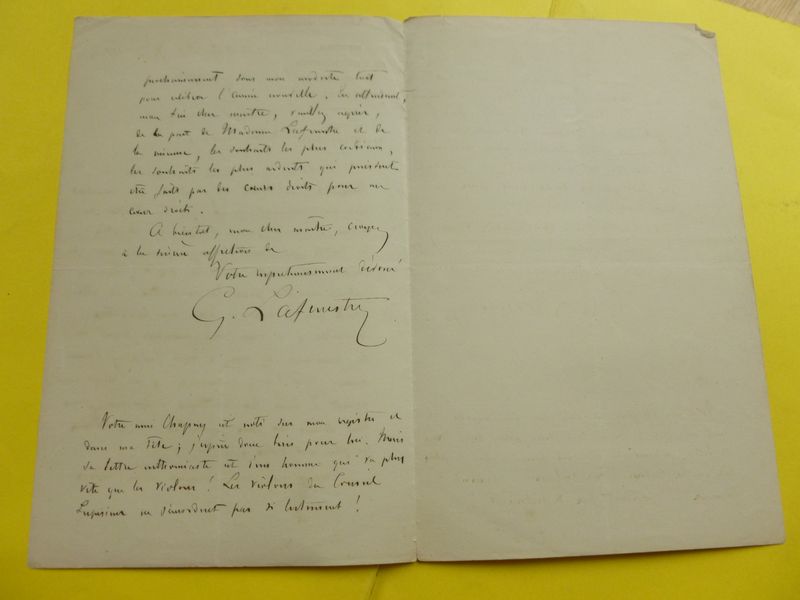 prochainement sous mon modeste toit
pour célébrer l'année nouvelle. En attendant,
mon bien cher maître, veuillez agréer,
de la part de Madame Lafenestre et de
la mienne, les souhaits les plus cordiaux,
les souhaits les plus ardents qui puissent
être faits par des cœurs droits pour un
cœur droit.
A bientôt, mon cher maître, croyez
à la sincère affection de
Votre respectueusement dévoué
G. Lafenestre
Votre ami Chapuy est noté sur mon registre et
dans ma tête; j'espère donc bien pour lui. Mais
sa lettre enthousiaste est d'un homme qui va plus
vite que les violons! Les violons du Conseil
Supérieur ne s'accordent pas si lestement!